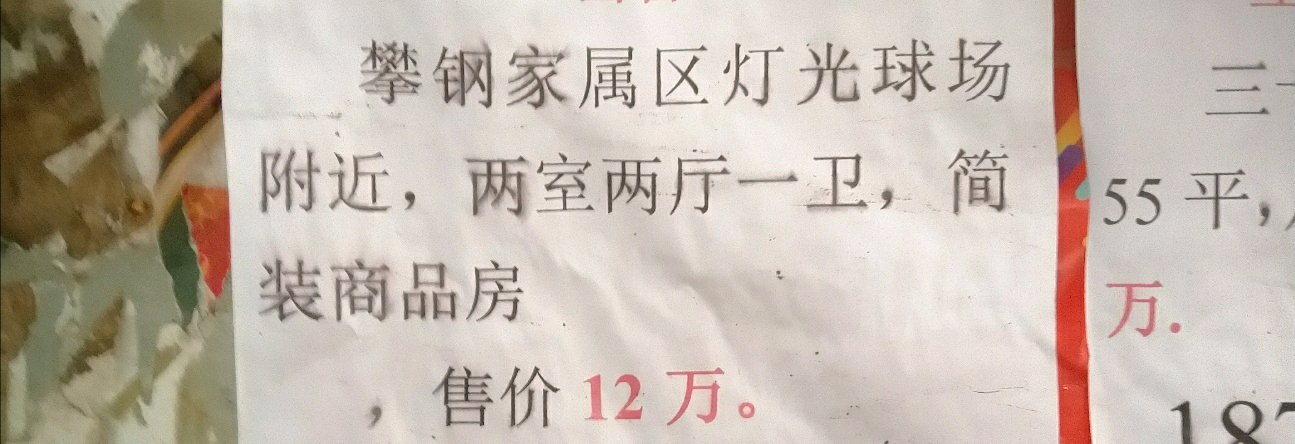 攀钢家属区灯光球场
附近，两室两厅一卫，简
装商品房
，售价12万。
三
55平，
万.
187